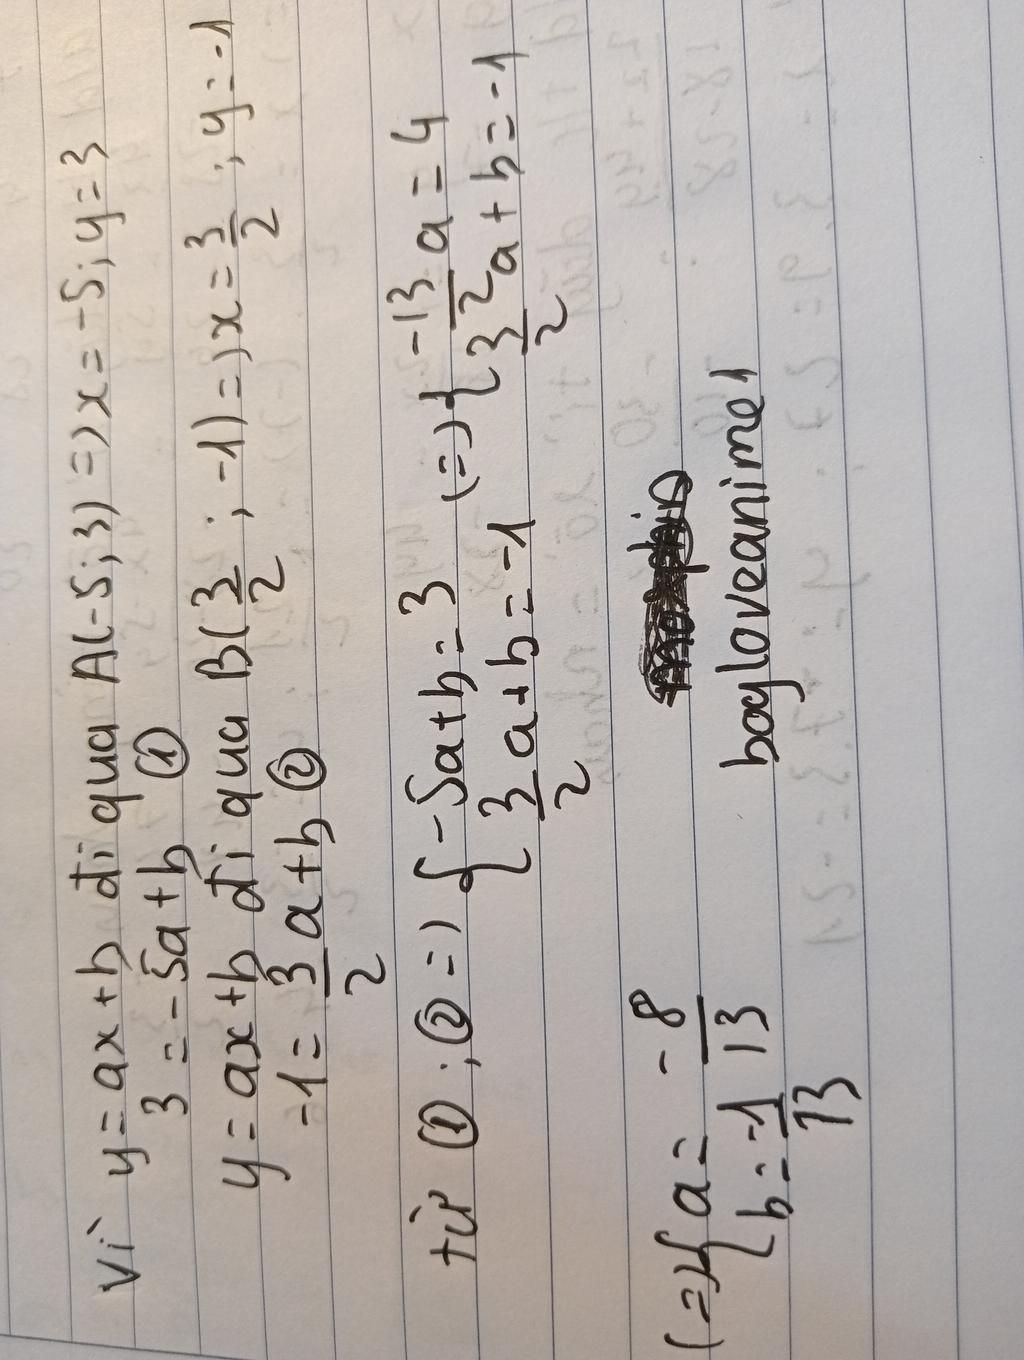 Vì y = ax + b đi qua A(-5;3) => x = -5; y = 3
3 = -5a + b ①
y = ax + b đi qua B(3/2; -1) => x = 3/2; y = -1
-1 = 3/2 a + b ②
từ ①; ② => { -5a + b = 3 (=) { -13/2 a = 4
{ 3/2 a + b = -1 { 3/2 a + b = -1
(=) { a = -8/13
{ b = -1/13
bogloveanime1